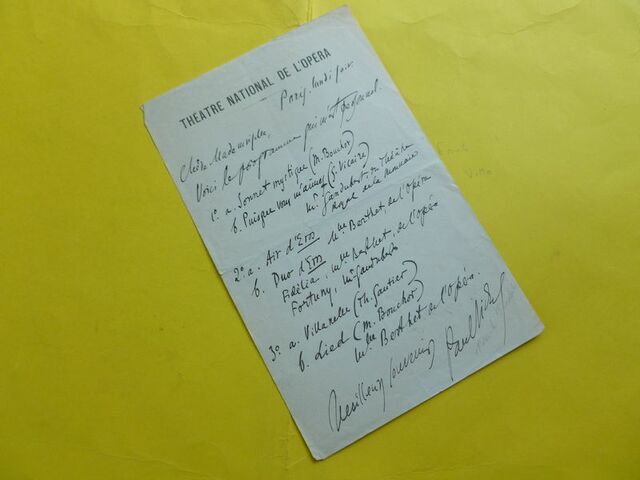 THÉATRE NATIONAL DE L'OPÉRA
Paris, lundi soir.
Chère Mademoiselle,
Voici le programme qui m'est personnel.
1º a. Sonnet mystique (M. Bouchor)
b. Puisque vous m'aimez (G. Vicaire)
Mr Gandubert, du Théâtre
Royal de la Monnaie
2º a. Air d'Eros
b. Duo d'Eros Mme Berthet, de l'Opéra
Fidélia, Mme Berthet, de l'Opéra
Fortuny, Mr Gandubert
3º a. Villanelle (Th. Gautier)
b. Lied (M. Bouchor)
Mme Berthet, de l'Opéra.
Meilleurs souvenirs
Paul Vidal